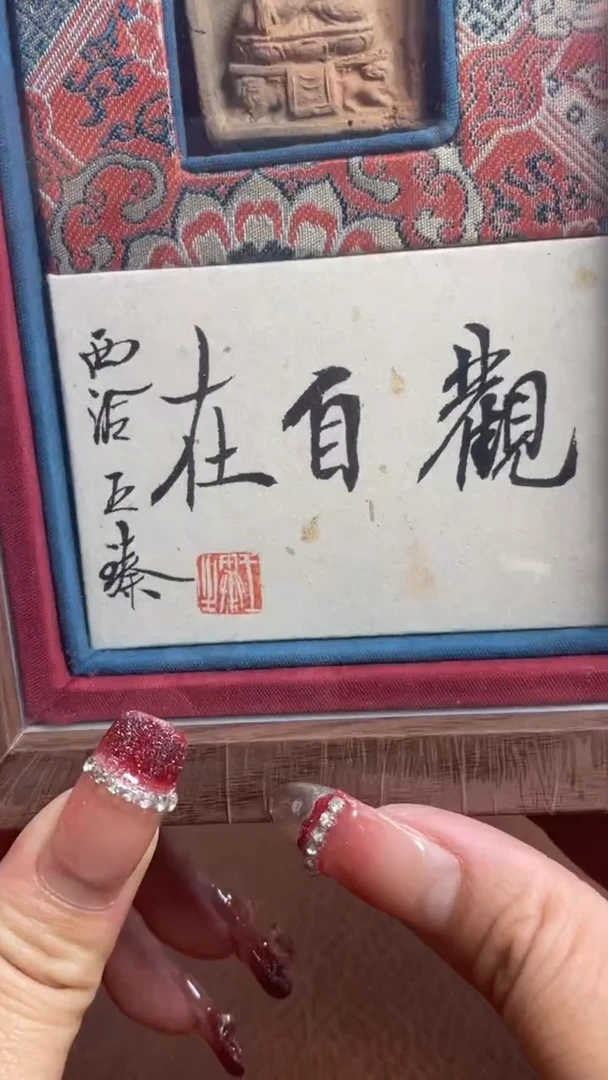 觀自在
西泠王臻